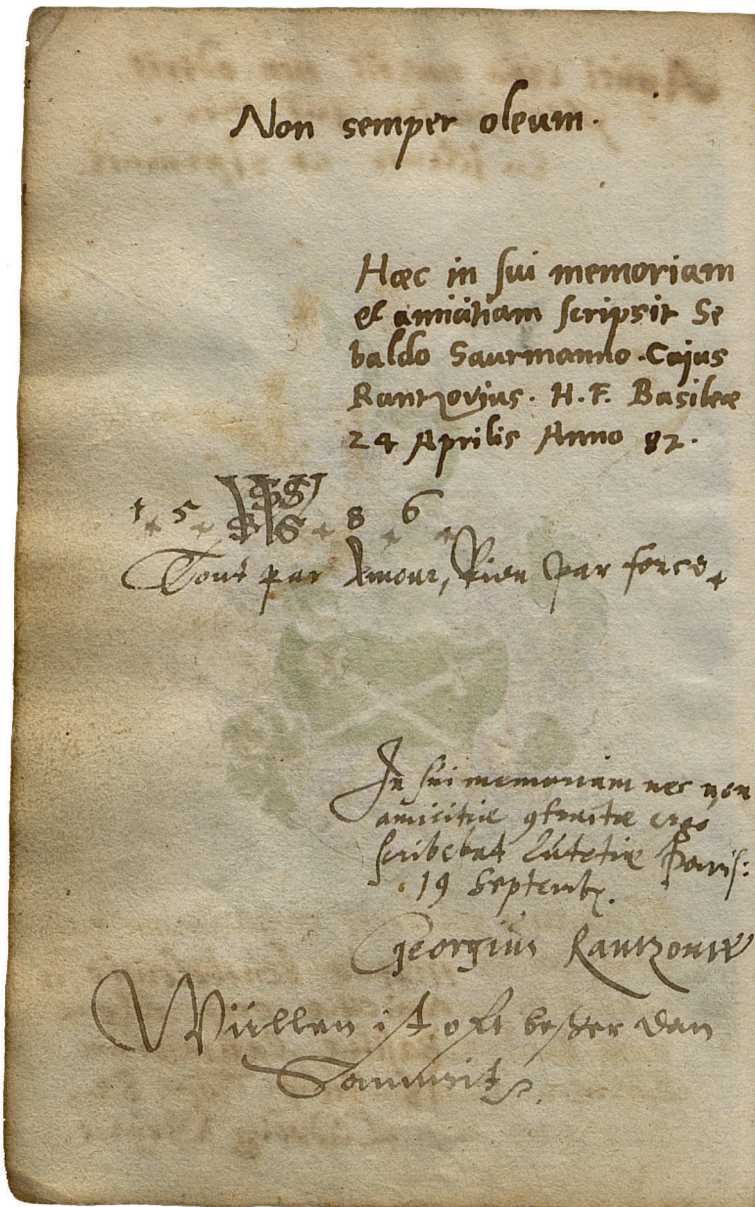 Non semper oleum.
Hæc in sui memoriam
et amicitiam scripsit Se
baldo Saurmanno. Cajus
Rantzovius. H. F. Basileæ
24 Aprilis Anno 82.
1 5 8 6
Tout par Amour, Rien par force
In sui memoriam nec non
amicitiæ ergo
scribebat Lutetiæ Paris:
19 Septemb.
Georgius Rantzouw
Wüllen ist oft beßer dan
Sammit